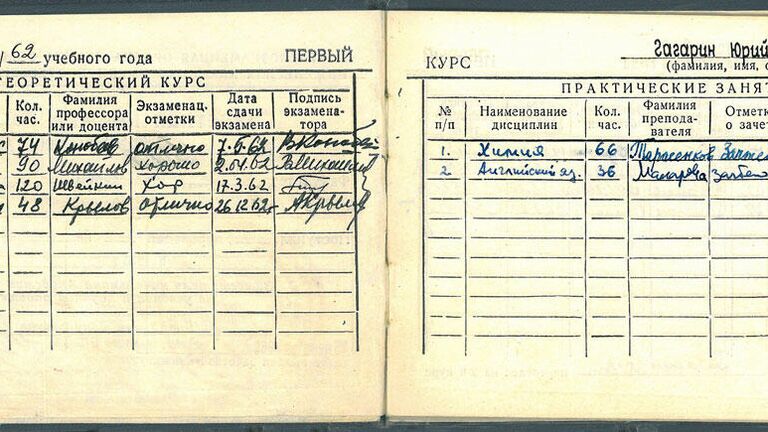 /62 учебного года ПЕРВЫЙ
ТЕОРЕТИЧЕСКИЙ КУРС
Кол. час. Фамилия профессора или доцента Экзаменац. отметки Дата сдачи экзамена Подпись экзамена-тора
74 отлично 7.6.62
90 Михайлов Хорошо 2.04.62 В.Михайлов
120 Швейкин Хор 17.3.62
48 Крылов Отлично 26.12.62 АКрылов
КУРС
Гагарин Юрий
(фамилия, имя, о
ПРАКТИЧЕСКИЕ ЗАНЯТ
№ п/п Наименование дисциплин Кол. час. Фамилия препода-вателя Отметк о заче
1. Химия 66 Тарасенков
2. Английский яз. 36 Макарова